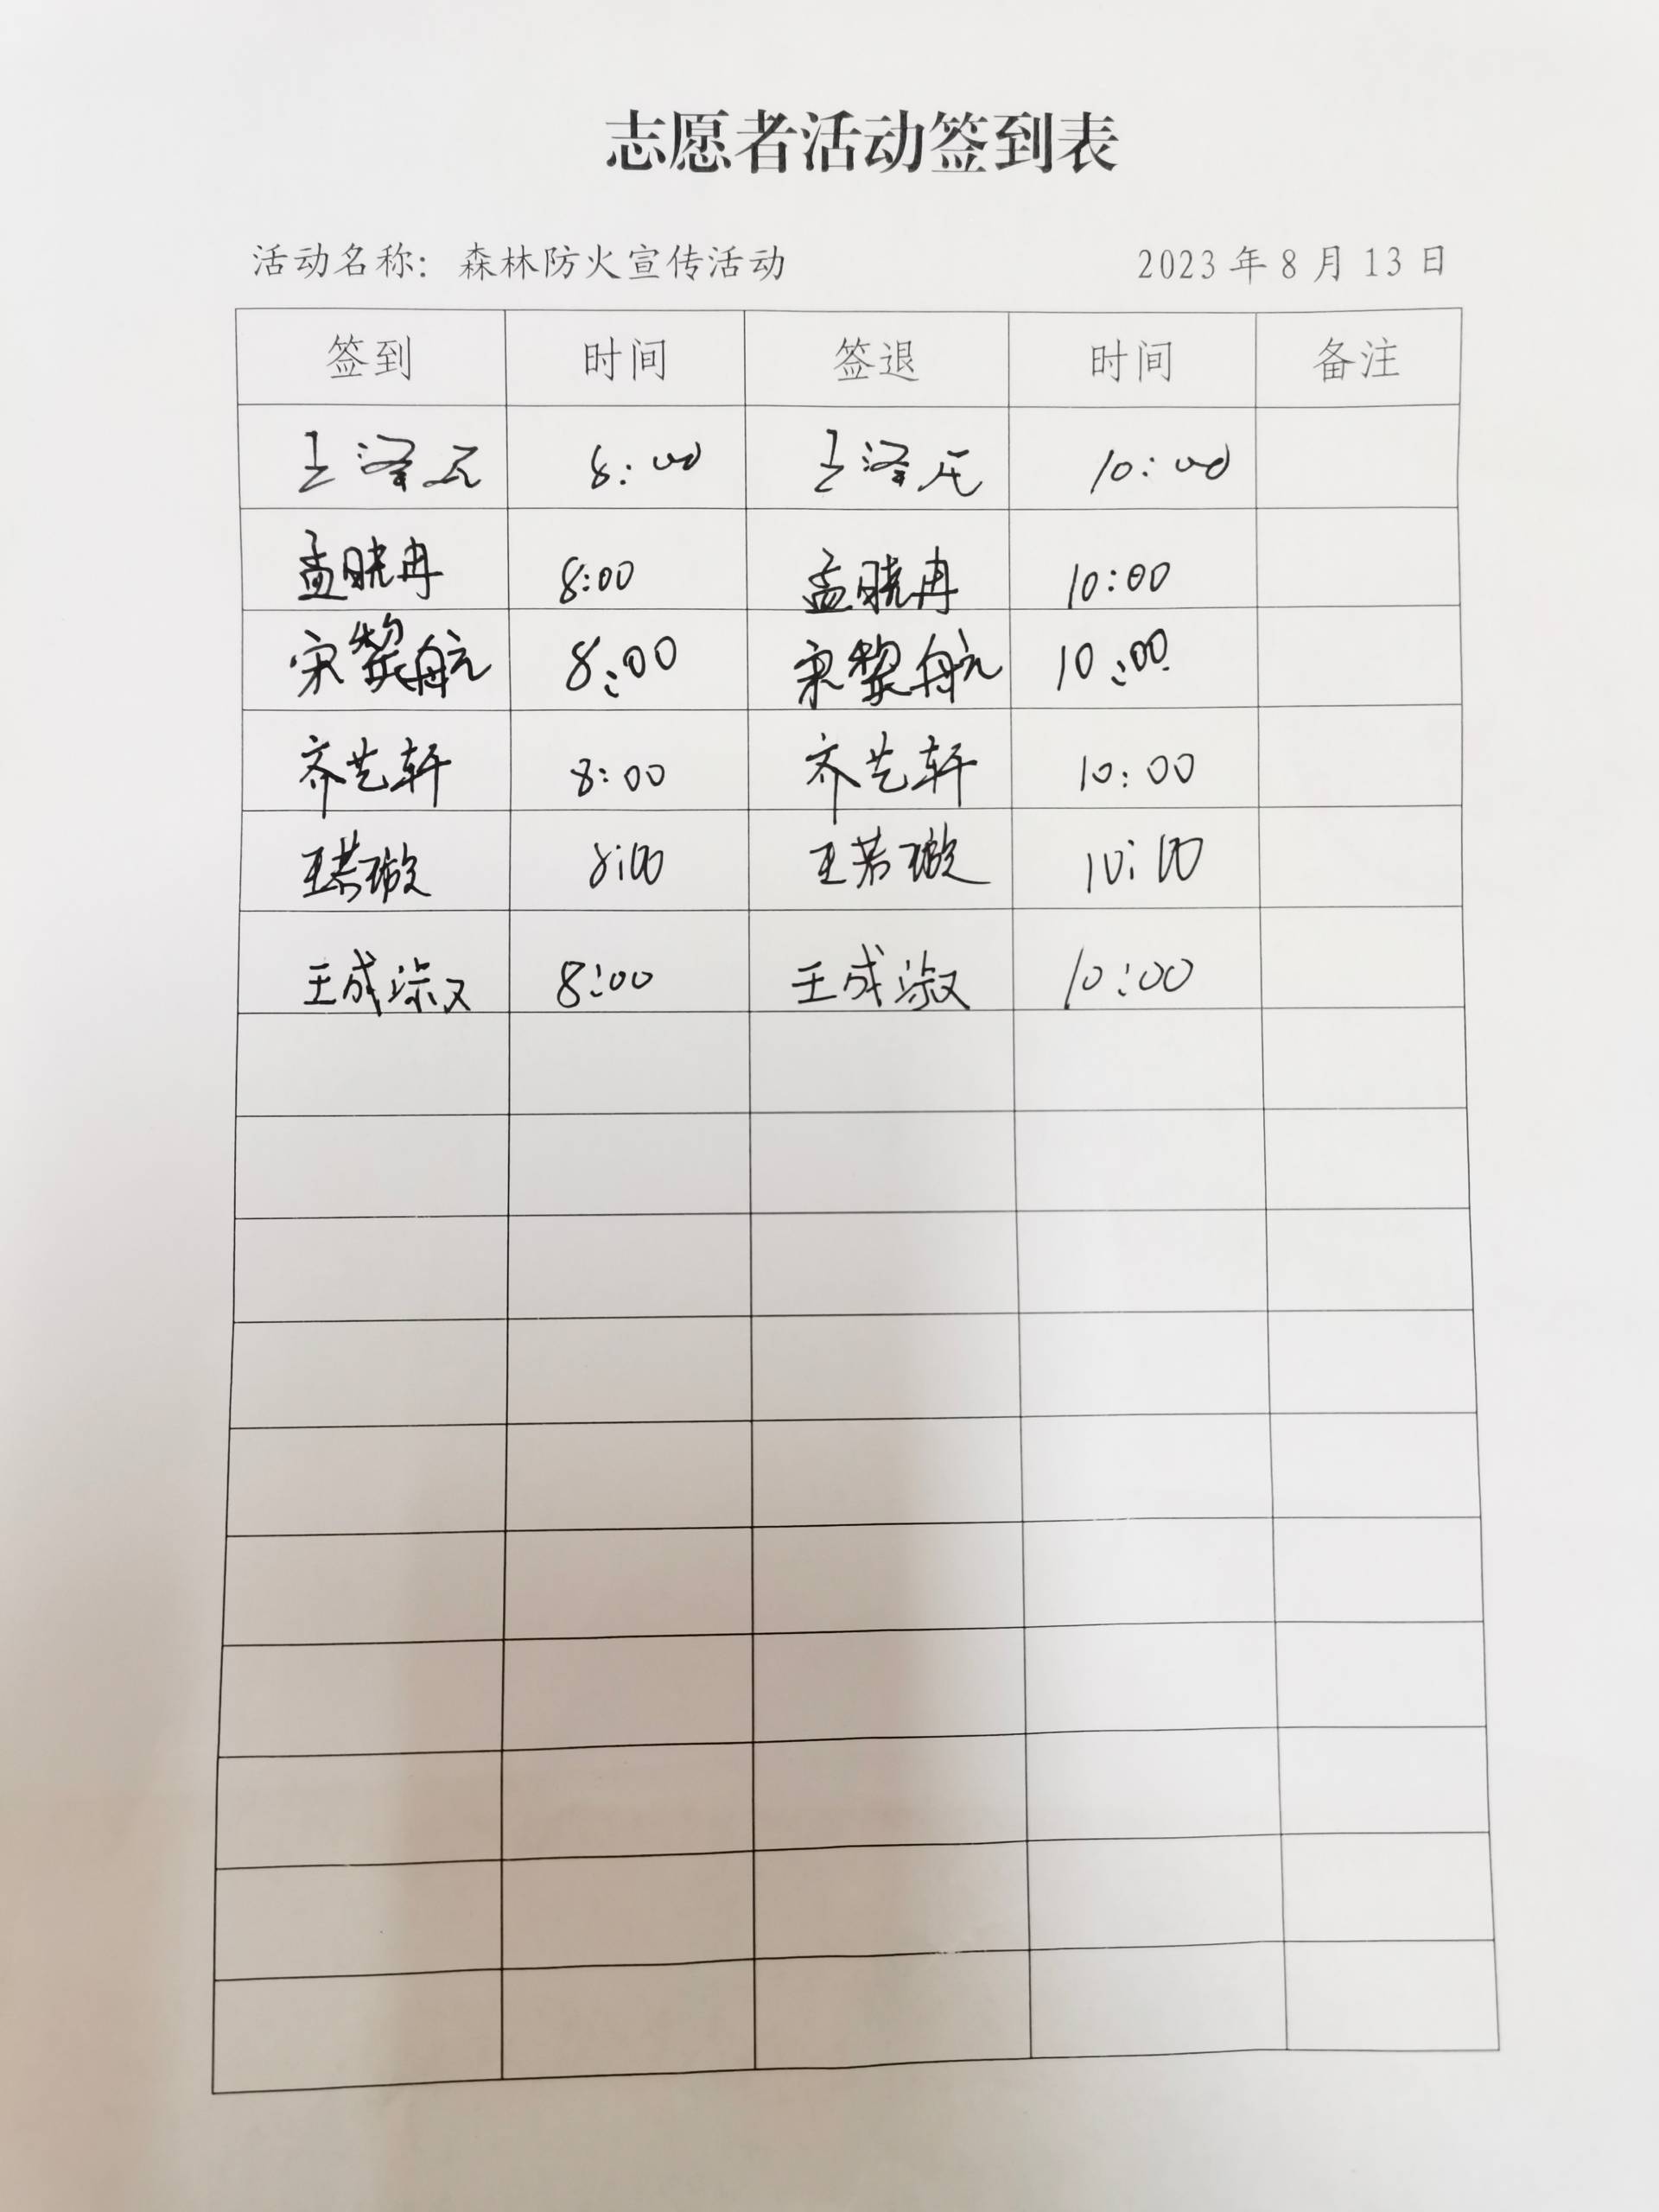 志愿者活动签到表
活动名称：森林防火宣传活动 2023年8月13日
签到 时间 签退 时间 备注
王泽 8:00 王泽 10:00
孟晓冉 8:00 孟晓冉 10:00
宋黎航 8:00 宋黎航 10:00
齐艺轩 8:00 齐艺轩 10:00
王若璇 8:00 王若璇 10:00
王成淑 8:00 王成淑 10:00